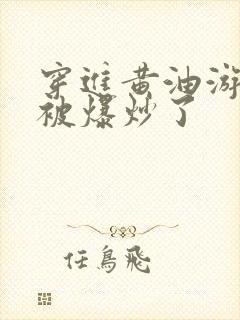 穿進黃油游
被爆炒了
任鳥飛